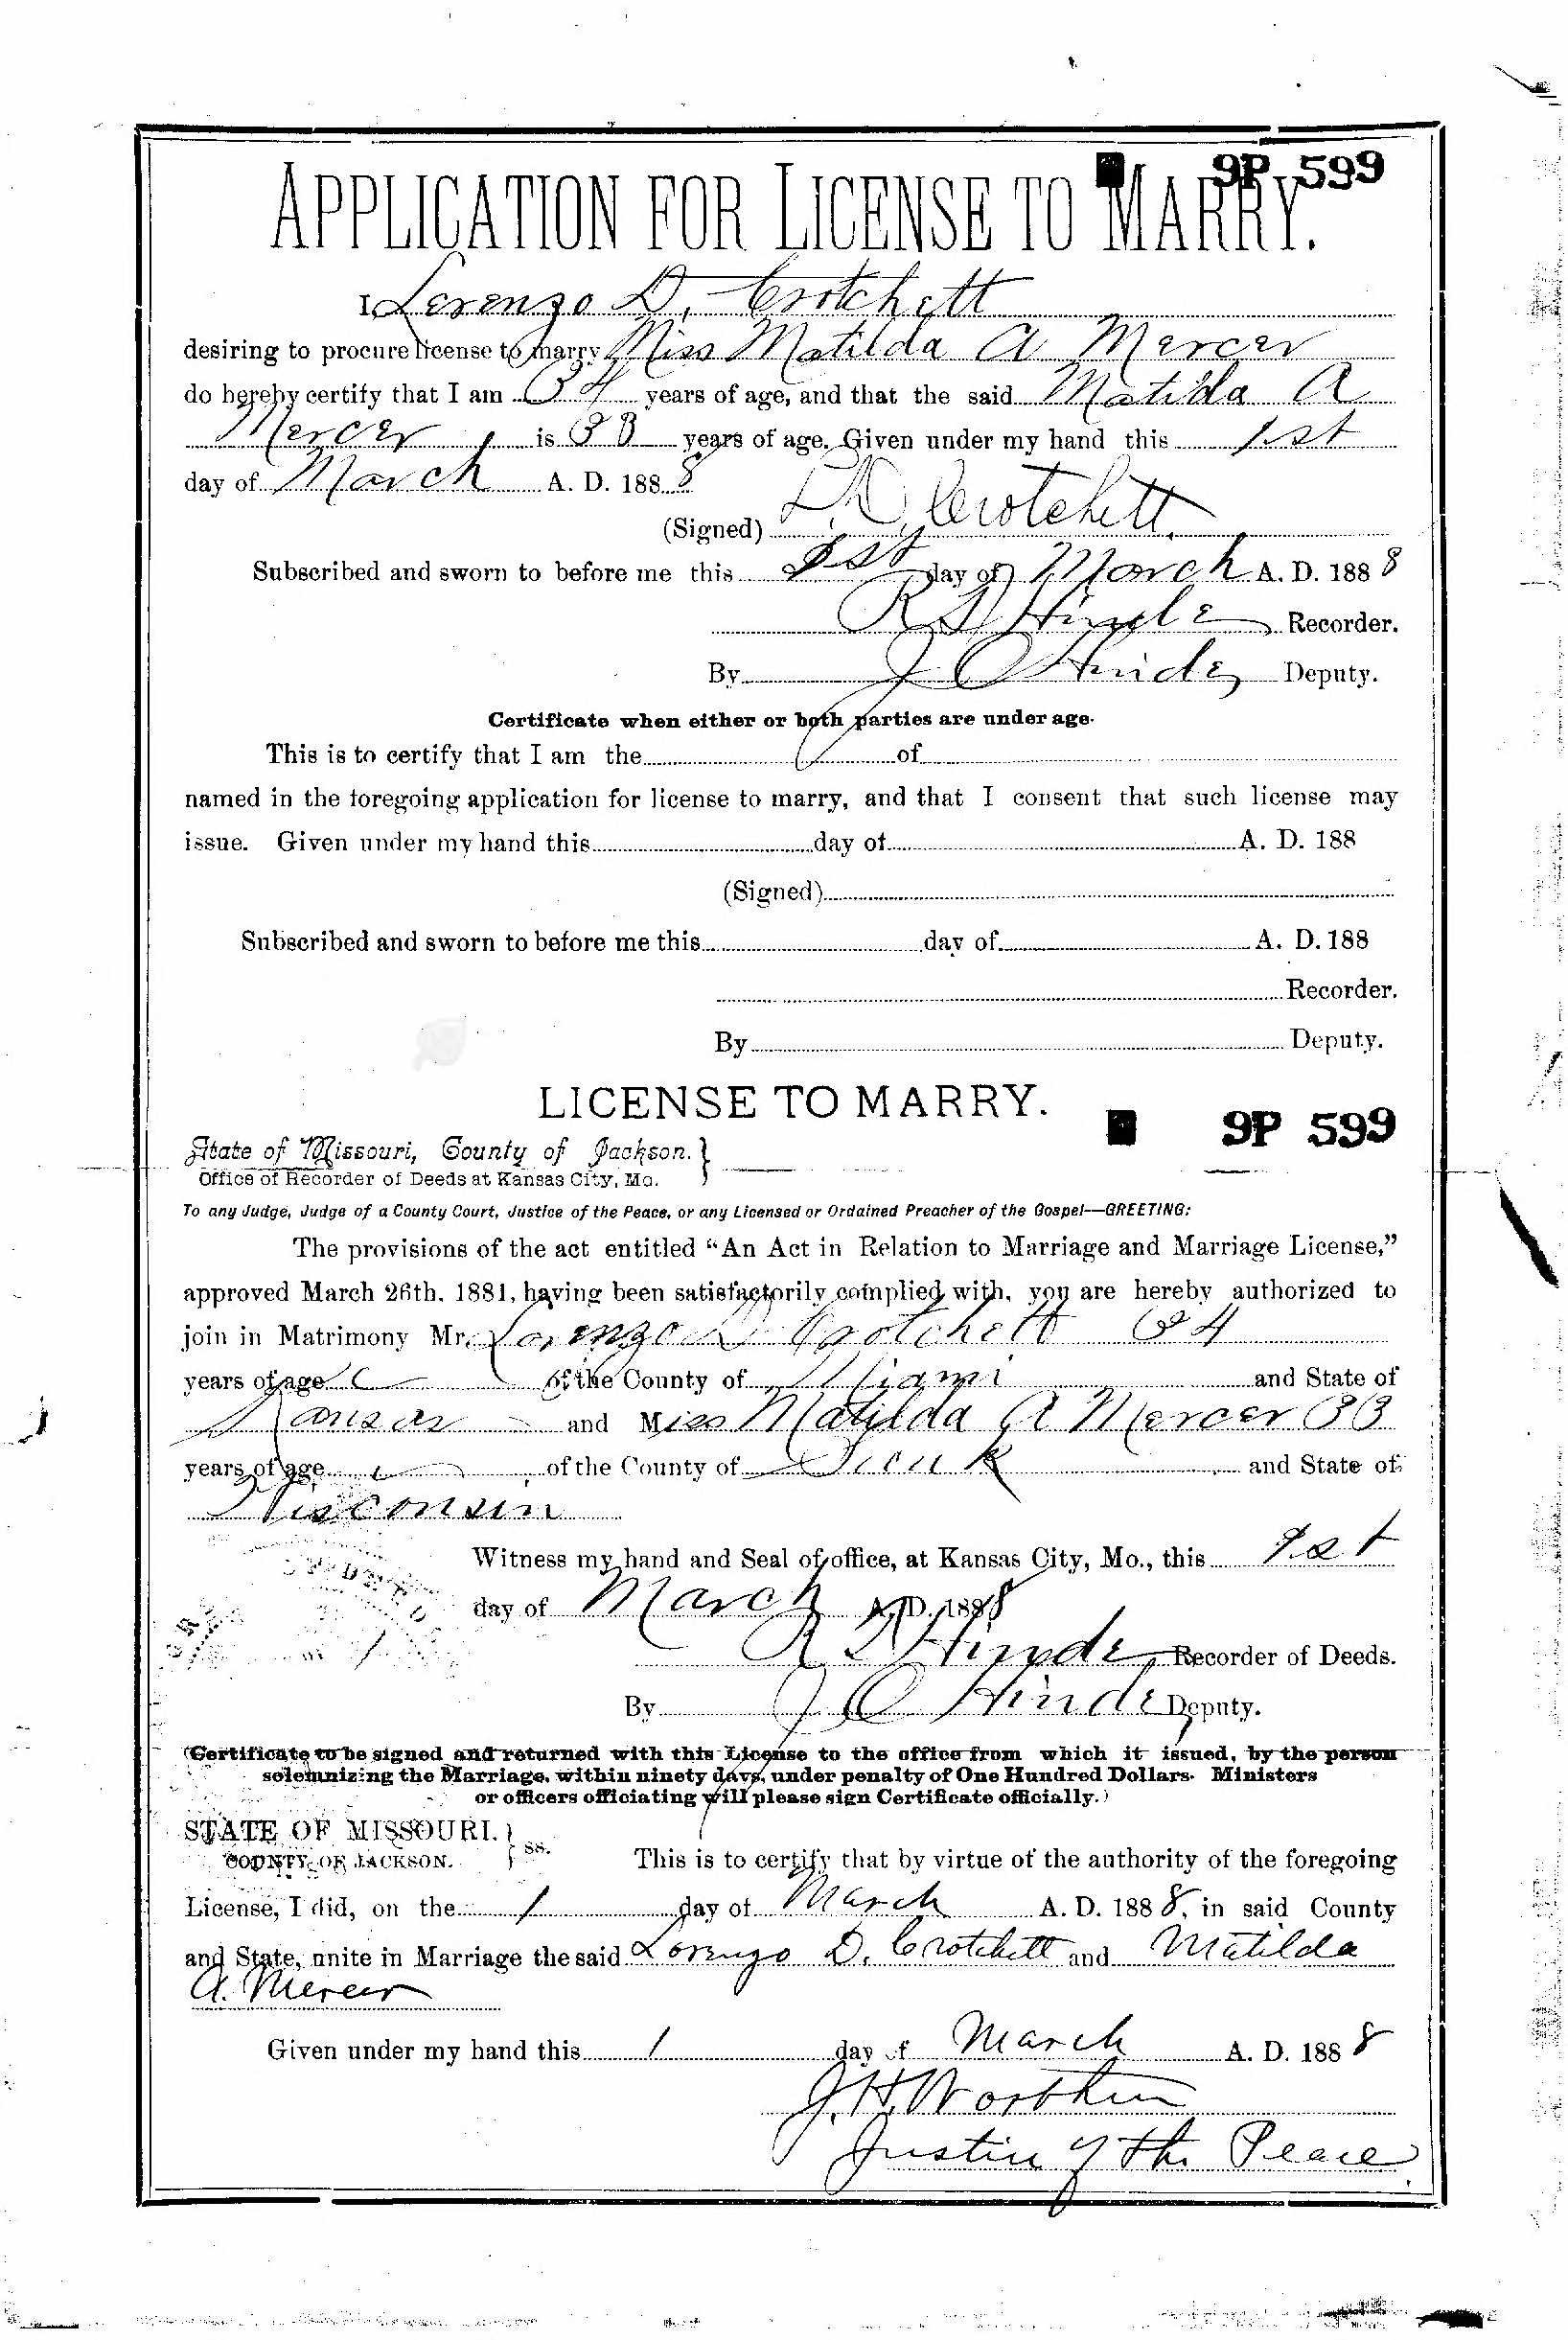 9P 599
APPLICATION FOR LICENSE TO MARRY.
I, Lorenzo D. Crotchett
desiring to procure license to marry Miss Matilda A Mercer
do hereby certify that I am 34 years of age, and that the said Matilda A
Mercer, is 33 years of age. Given under my hand this 1st
day of March A. D. 1888
(Signed) L D. Crotchett.
Subscribed and sworn to before me this 1st day of March A. D. 1888
R S Hinde Recorder.
By J C Hinde Deputy.
Certificate when either or both parties are under age.
This is to certify that I am the of
named in the foregoing application for license to marry, and that I consent that such license may
issue. Given under my hand this day of A. D. 188
(Signed)
Subscribed and sworn to before me this day of A. D. 188
Recorder.
By Deputy.
LICENSE TO MARRY.
9P 599
State of Missouri, County of Jackson. }
Office of Recorder of Deeds at Kansas City, Mo.
To any Judge, Judge of a County Court, Justice of the Peace, or any Licensed or Ordained Preacher of the Gospel—GREETING:
The provisions of the act entitled “An Act in Relation to Marriage and Marriage License,”
approved March 26th, 1881, having been satisfactorily complied with, you are hereby authorized to
join in Matrimony Mr. Lorenzo D Crotchett 34
years of age of the County of Miami and State of
Kansas and Miss Matilda A Mercer 33
years of age of the County of and State of
Wisconsin
Witness my hand and Seal of office, at Kansas City, Mo., this 1st
day of March A. D. 1888
R S Hinde Recorder of Deeds.
By J C Hinde Deputy.
(Certificate to be signed and returned with this License to the office from which it issued, by the person
solemnizing the Marriage, within ninety days, under penalty of One Hundred Dollars. Ministers
or officers officiating will please sign Certificate officially.)
STATE OF MISSOURI. } ss.
COUNTY OF JACKSON.
This is to certify that by virtue of the authority of the foregoing
License, I did, on the 1 day of March A. D. 1888, in said County
and State, unite in Marriage the said Lorenzo D. Crotchett and Matilda
A. Mercer
Given under my hand this 1 day of March A. D. 1888
J. H. Worthen
Justice of the Peace